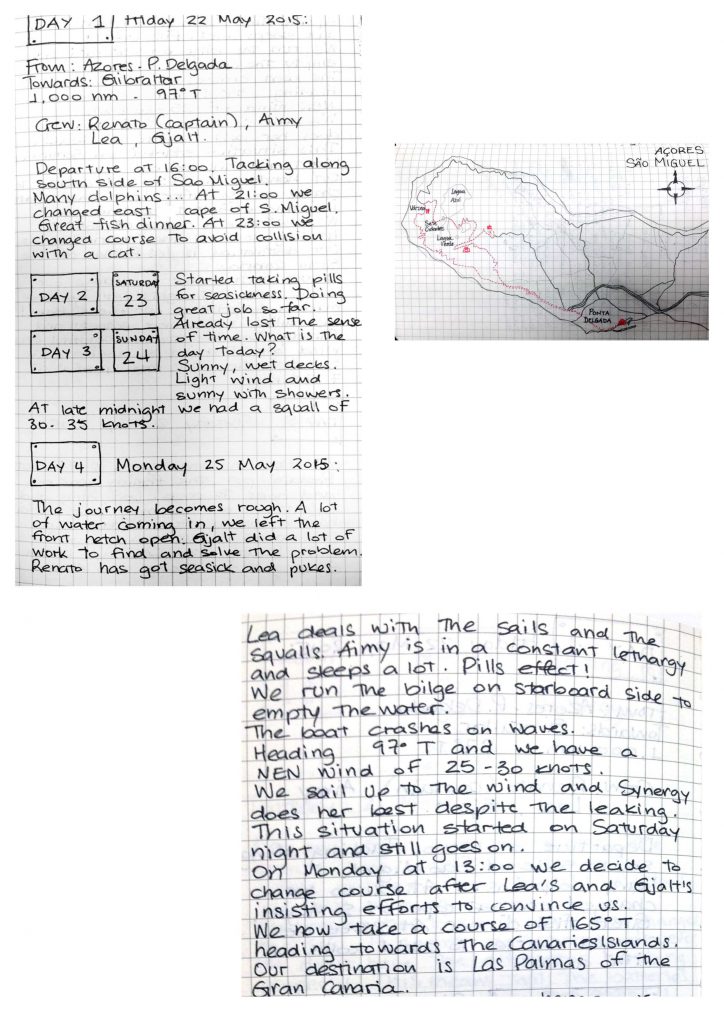 DAY 1 Friday 22 May 2015:
From: Azores - P. Delgada
Towards: Gibraltar
1,000 nm - 97°T
Crew: Renato (captain), Aimy
Lea, Gjalt.
Departure at 16:00. Tacking along
south side of Sao Miguel.
Many dolphins... At 21:00 we
changed east cape of S. Miguel.
Great fish dinner. At 23:00 we
changed course to avoid collision
with a cat.
DAY 2
SATURDAY
23
Started taking pills
for seasickness. Doing
great job so far.
DAY 3
SUNDAY
24
Already lost the sense
of time. What is the
day today?
Sunny, wet decks.
Light wind and
sunny with showers.
At late midnight we had a squall of
30-35 knots.
DAY 4 Monday 25 May 2015:
The journey becomes rough. A lot
of water coming in, we left the
front hetch open. Gjalt did a lot of
work to find and solve the problem.
Renato has got seasick and pukes.
AÇORES
SÃO MIGUEL
Lagoa
Azul
Sete
Cidades
Lagoa
Verde
PONTA
DELGADA
Lea deals with the sails and the
squalls. Aimy is in a constant lethargy
and sleeps a lot. Pills effect!
We run the bilge on starboard side to
empty the water.
The boat crashes on waves.
Heading 97°T and we have a
NEN wind of 25-30 knots.
We sail up to the wind and Synergy
does her best despite the leaking.
This situation started on Saturday
night and still goes on.
On Monday at 13:00 we decide to
change course after Lea's and Gjalt's
insisting efforts to convince us.
We now take a course of 165°T
heading towards the Canaries Islands.
Our destination is Las Palmas of the
Gran Canaria.